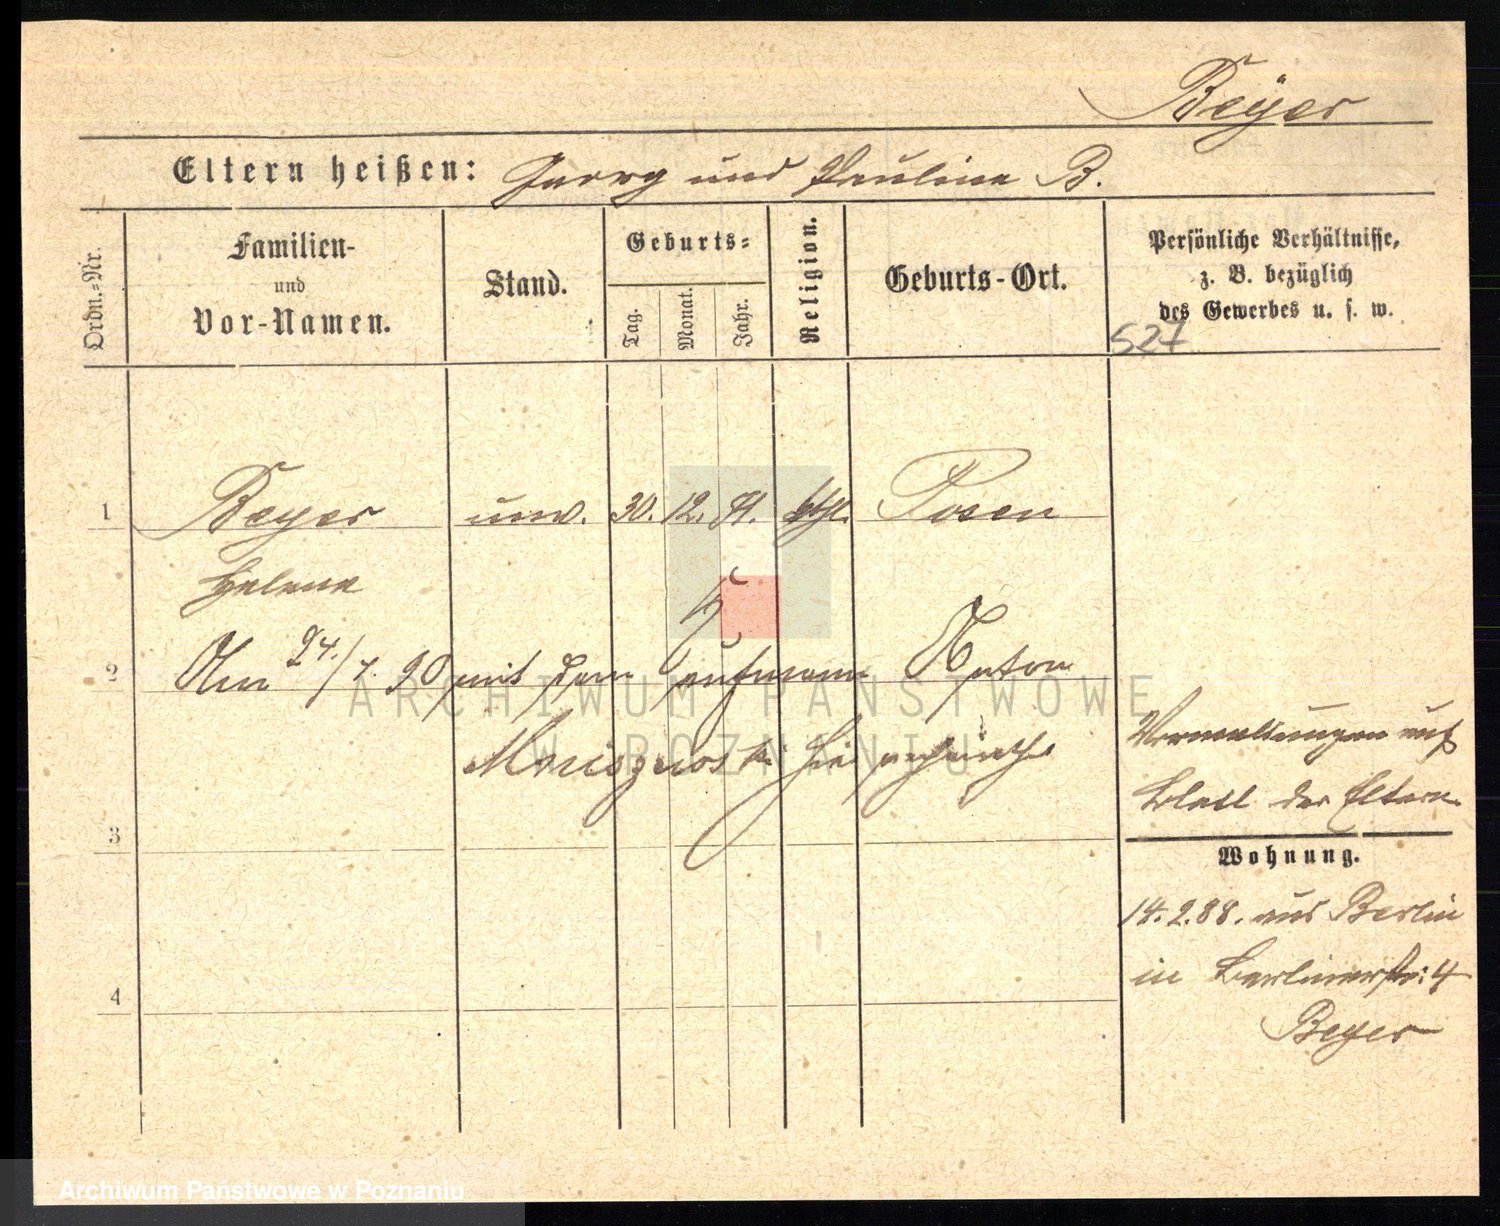 Beyer
Eltern heißen: Georg und Pauline B.
Ordn.-Nr.
Familien-
und
Vor-Namen.
Stand.
Geburts-
Tag.
Monat.
Jahr.
Religion.
Geburts-Ort.
Persönliche Verhältnisse,
z. B. bezüglich
des Gewerbes u. s. w.
527
1 Beyer unv. 30. 12. kthl. Posen
Helene
2 Am 24./7. 90 mit dem Kaufmann
verheirathet
3
4
Vermerkungen auf
Blatt der Eltern
Wohnung.
14.2.88. aus Berlin
in Berlinerstr: 4
Beyer
ARCHIWUM PAŃSTWOWE
W POZNANIU
Archiwum Państwowe w Poznaniu